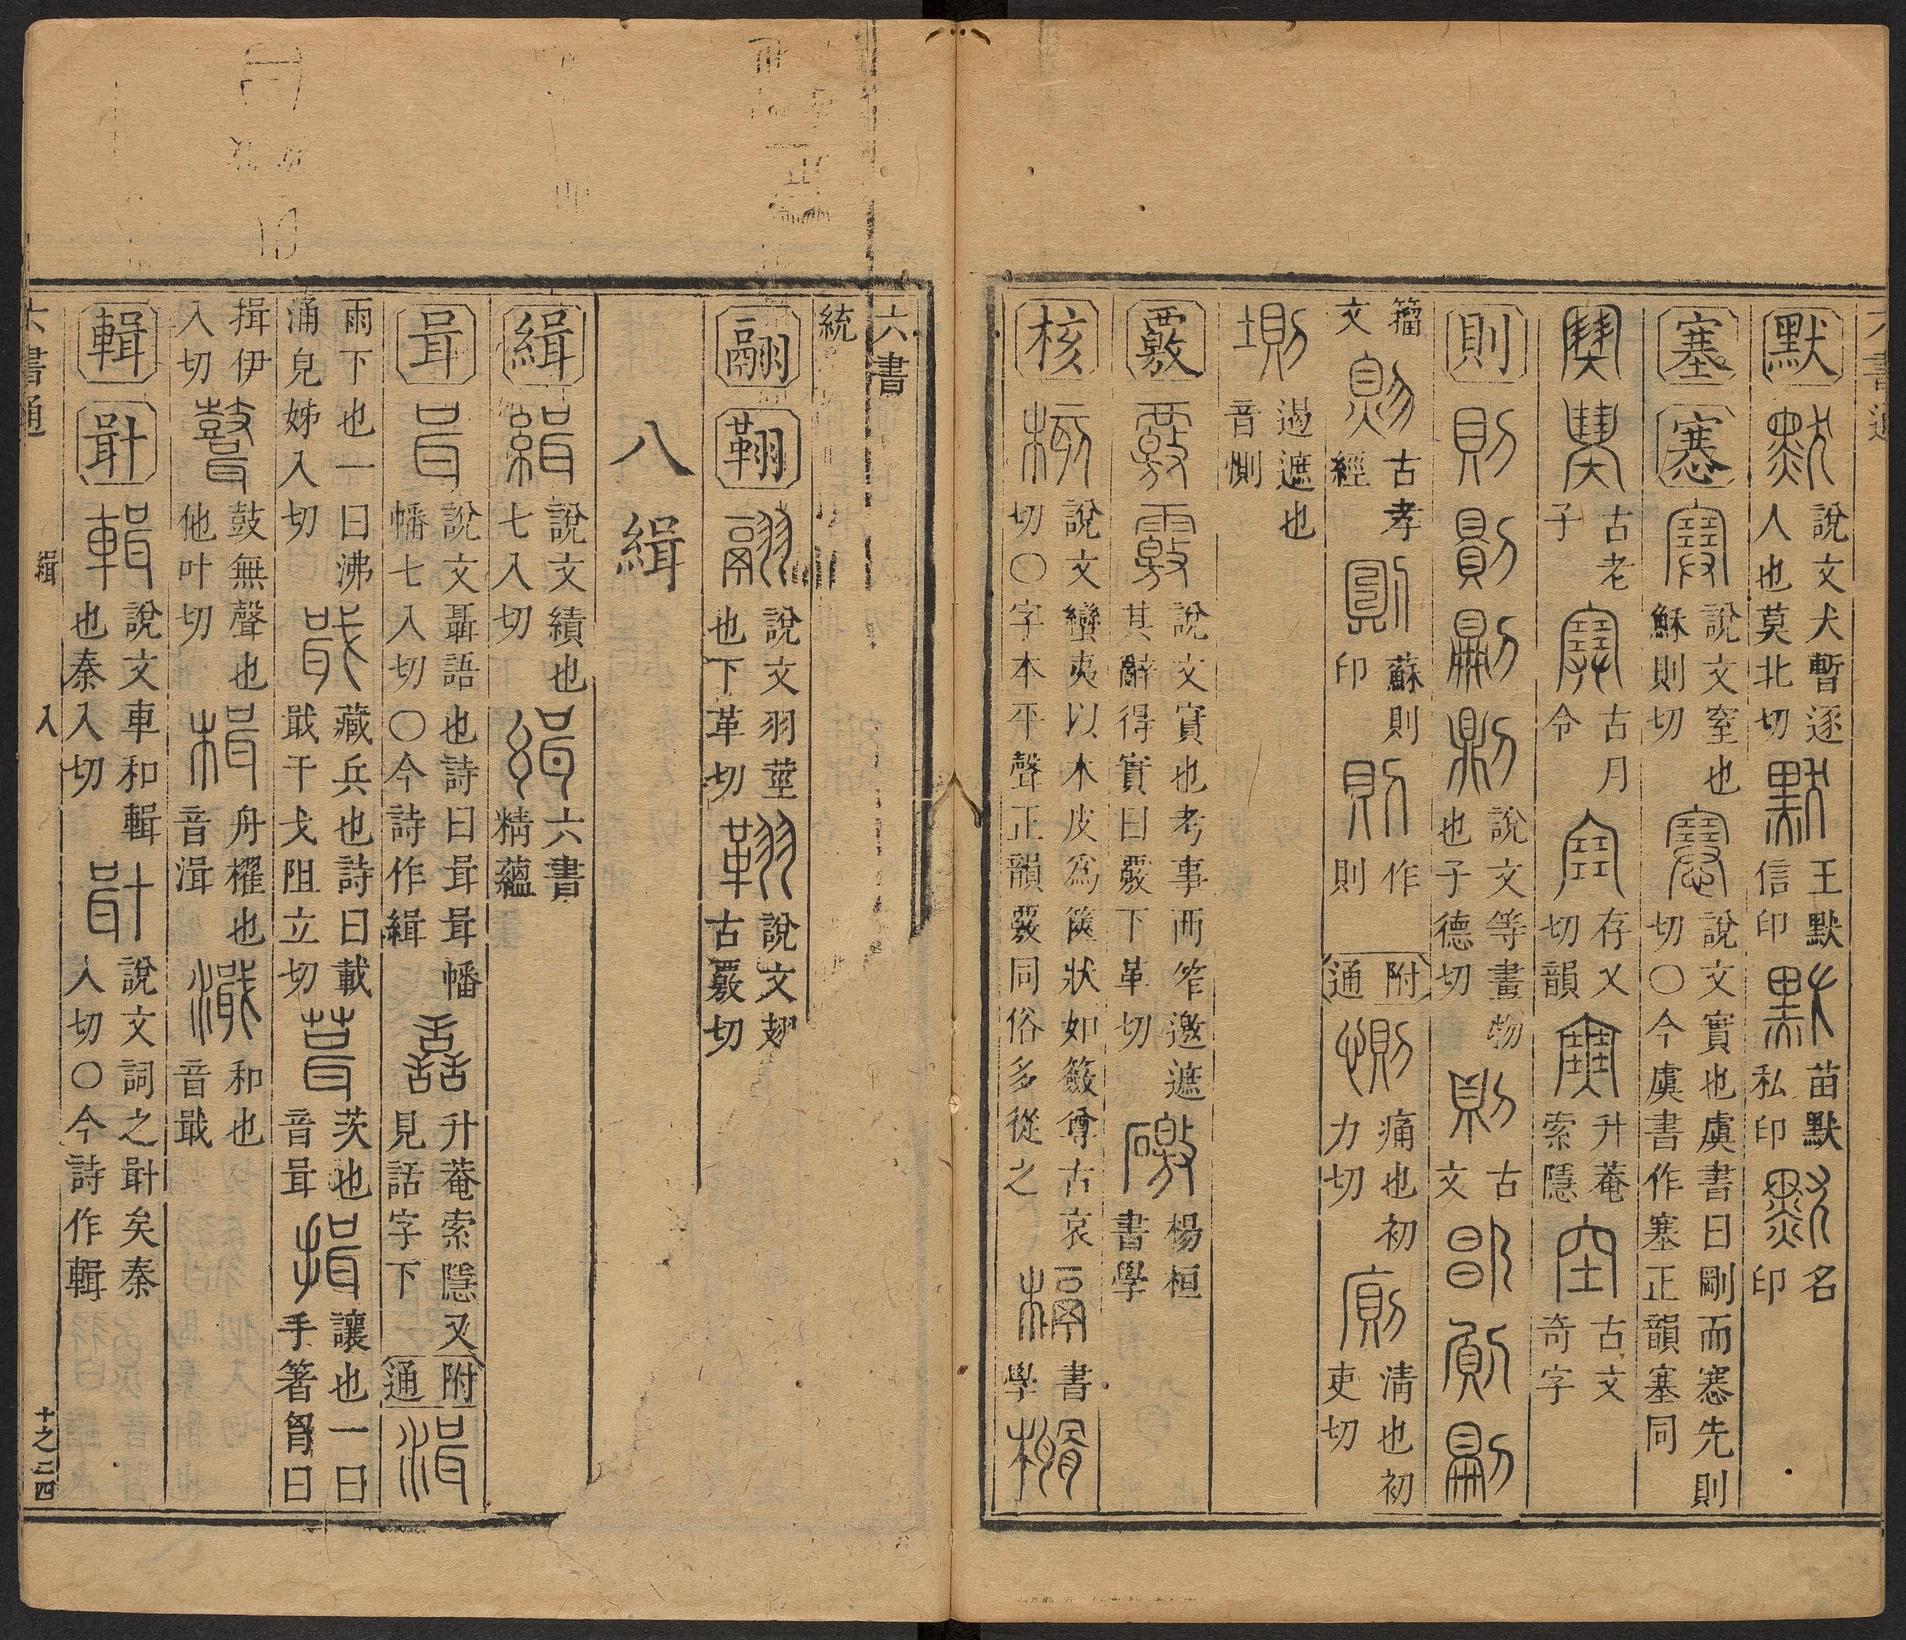 默 說文犬暫逐人也莫北切 王默信印 苗默私印 名印
塞 𡫳 說文窒也穌則切 說文實也虞書曰剛而𡫳先則切〇今虞書作塞正韻塞同
古老子 古月令 存乂切韻 升菴索隱 古文奇字
則 說文等畫物也子德切 古文
籀文 古孝經 蘇則印 作則 附通 痛也初力切 清也初吏切
遏遮也音惻
覈 說文實也考事而笮邀遮其辭得實曰覈下革切 楊桓書學
核 說文蠻夷以木皮爲篋狀如籢尊古哀切〇字本平聲正韻覈同俗多從之 書學
六書統
翮 䎒 說文羽莖也下革切 說文翅也古覈切
八緝
緝 說文績也七入切 六書精蘊
咠 說文聶語也詩曰咠咠幡幡七入切〇今詩作緝 升菴索隱又見話字下 附通
雨下也一曰沸涌皃姊入切 藏兵也詩曰載戢干戈阻立切 茨也音咠 讓也一曰手箸胷曰
揖伊入切 鼓無聲也他叶切 舟櫂也音湒 和也音戢
輯 𠦫 說文車和輯也秦入切 說文詞之𠦫矣秦入切〇今詩作輯
六書通 緝 入 十之二四